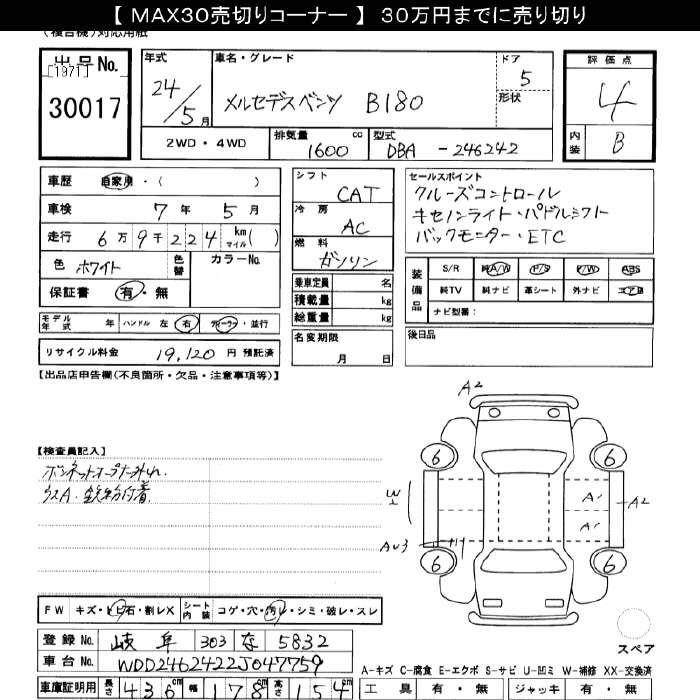 【 MAX30売切りコーナー 】 30万円までに売り切り
(複合機)対応用紙
出品No.
[1971]
30017
年式
24/5月
車名・グレード
メルセデスベンツ B180
ドア
5
形状
評価点
4
内装
B
2WD・4WD
排気量
1600 cc
型式
DBA - 246242
車歴 自家用・( )
車検 7年 5月
走行 6万9千224 km マイル( )
色 ホワイト
色替
カラーNo.
保証書 有・無
モデル年式 年
ハンドル 左 右
ディーラー・並行
リサイクル料金 19,120 円 預託済
シフト
CAT
冷房
AC
燃料
ガソリン
乗車定員 名
積載量 kg
総重量 kg
名変期限
月 日
セールスポイント
クルーズコントロール
キセノンライト・パドルシフト
バックモニター・ETC
装備品
S/R 純A/W P/S P/W ABS
純TV 純ナビ 革シート 外ナビ エアB
ナビ型番:
後日品
【出品店申告欄(不良箇所・欠品・注意事項等)】
【検査員記入】
ボンネットオープナー外れ.
ウスA. 鉄粉付着
A2
6
6
W
A1
A2
A1
AU3
6
6
スペア
FW キズ・トビ石・割レX
シート内装 コゲ・穴・汚レ・シミ・破レ・スレ
登録No. 岐阜 303 な 5832
車台No. WDD2462422J047759
車庫証明用 長さ 436cm 幅 178cm 高さ 154cm
A-キズ C-腐食 E-エクボ S-サビ U-凹ミ W-補修 XX-交換済
工具 有・無 ジャッキ 有・無